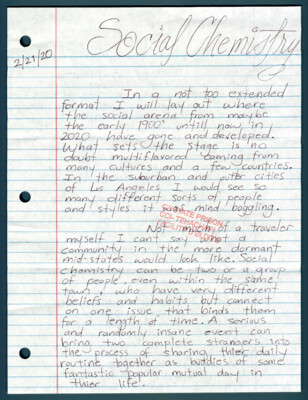 Social Chemistry
2/21/20
In a not too extended
format I will lay out where
the social arena from maybe
the early 1900' untill now in
2020 have gone and developed.
What sets the stage is no
doubt multiflavored coming from
many cultures and a few countries.
In the suburban and cities
of Los Angeles I would see so
many different sorts of people
and styles it was mind boggling.
STATE PRISON
Not much of a traveler
myself I can't say what a
community in the more dormant
mid-states would look like. Social
chemistry can be two or a group
of people, even within the same
town, who have very different
beliefs and habits but connect
on one issue that binds them
for a length of time. A serious
and randomly insane event can
bring two complete strangers into
the process of sharing thier daily
routine together as buddies of some
fantastic popular mutual day in
thier life.